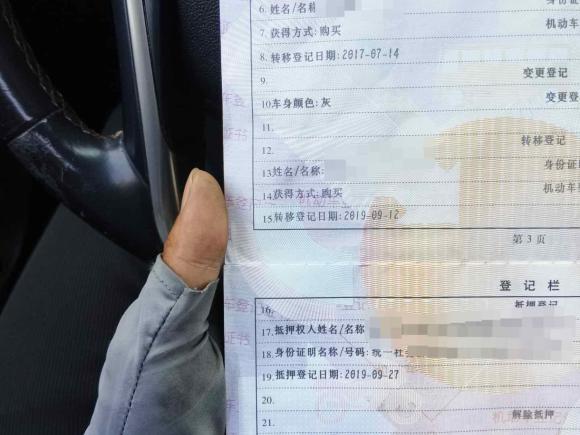 6. 姓名/名称
7. 获得方式: 购买 机动车
8. 转移登记日期: 2017-07-14
9. 变更登记
10. 车身颜色: 灰 变更登
11.
12. 转移登记
13. 姓名/名称: 身份证
14. 获得方式: 购买 机动车
15. 转移登记日期: 2019-09-12
第 3 页
登 记 栏
16. 抵押登记
17. 抵押权人姓名/名称
18. 身份证明名称/号码: 统一社
19. 抵押登记日期: 2019-09-27
20.
21. 解除抵押